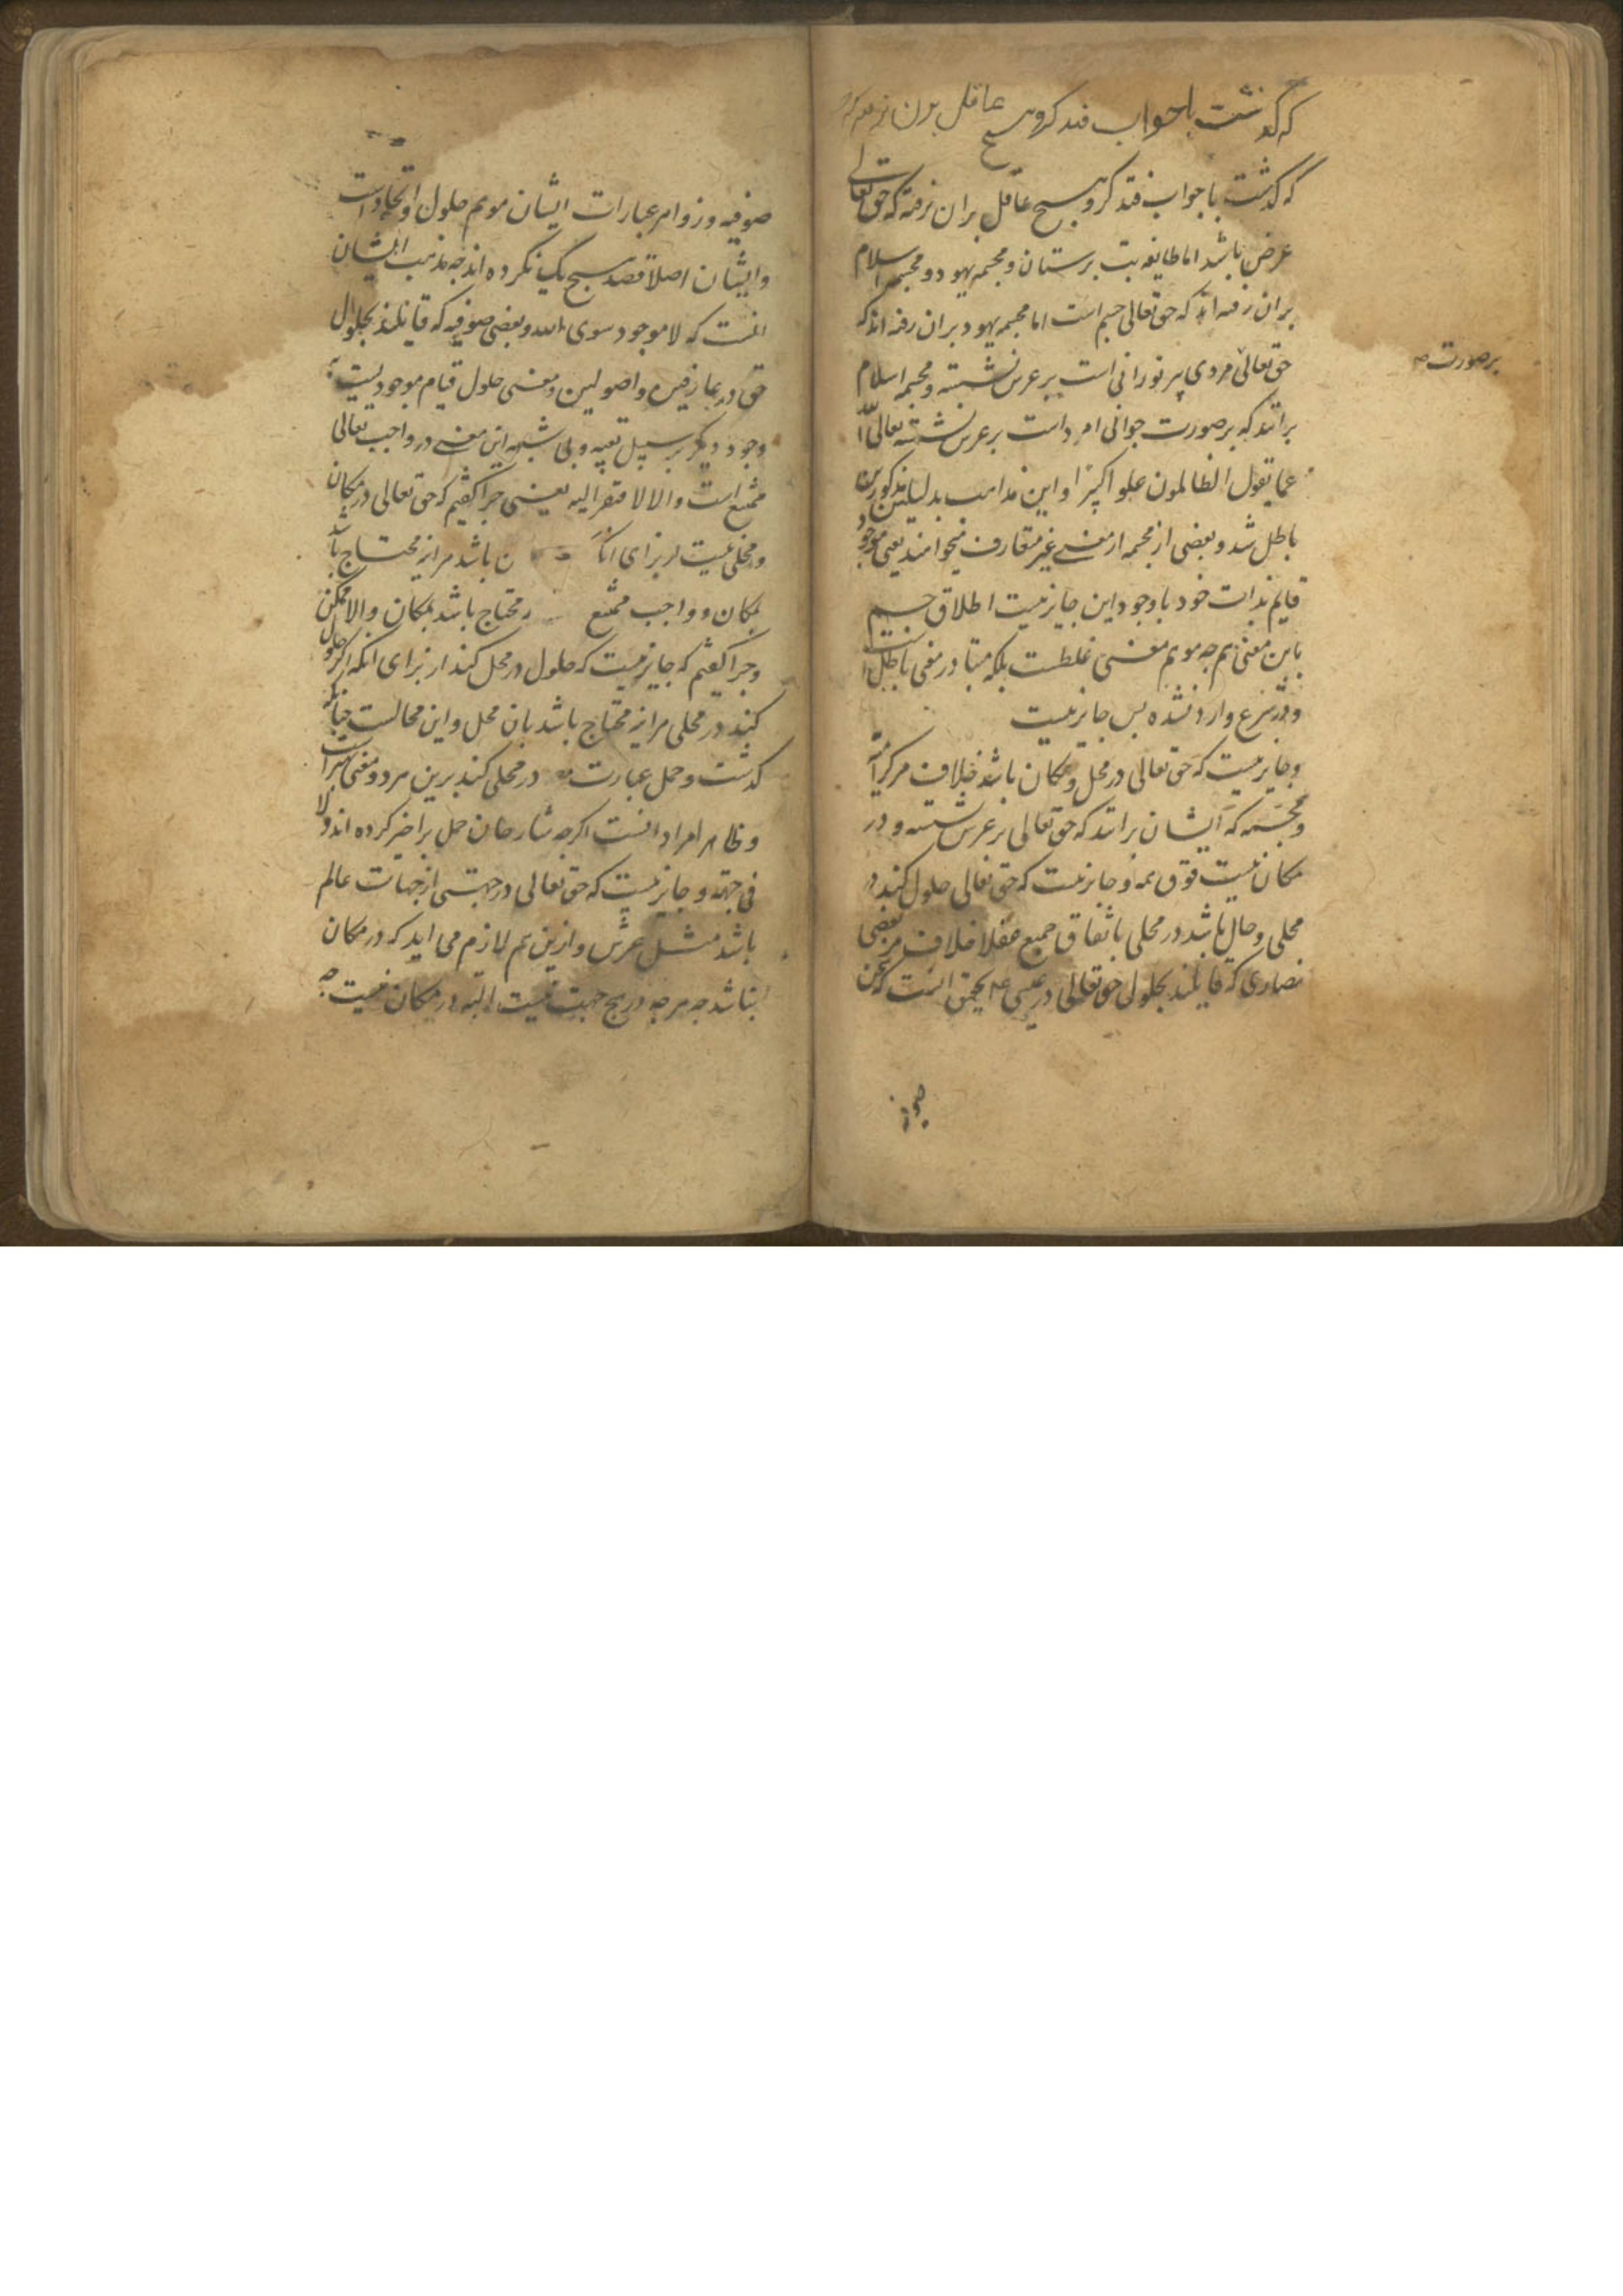 که گذشت با جواب فتد کرو هیچ عاقل بران
که گذشت با جواب فتد کرو هیچ عاقل بران نرفته که حق تعالی
عرض باشد اما طایفه بت پرستان و مجسمه یهود و مجسمه اسلام
بران رفته اند که حق تعالی جسم است اما مجسمه یهود بران رفته اند که
بر صورت
حق تعالی مردی پیر نورانی است بر عرش نشسته و مجسمه اسلام
برانند که بر صورت جوانی امرد است بر عرش نشسته تعالی الله
عما یقول الظالمون علوا کبیرا و این مذاهب بدلیلین مذکورین
باطل شد و بعضی از مجسمه از معنی غیر متعارف میخوانند یعنی موجود
قایم بذات خود با وجود این جایز نیست اطلاق جسم
باین معنی هم چه موهم معنی غلطست بلکه متبادر معنی باطل است
و در شرع وارد نشده پس جایز نیست
و جایز نیست که حق تعالی در محل و مکان باشد خلاف مر کرامیه
و مجسمه که ایشان برانند که حق تعالی بر عرش نشسته و در
مکان نیست فوق همه و جایز نیست که حق تعالی حلول کند در
محلی و حال باشد در محلی باتفاق جمیع عقلا خلاف مر بعضی
نصاری که قایلند بحلول حق تعالی در عیسی عم تحقیق انست که
صوفیه و ظواهر عبارات ایشان موهم حلول و اتحاد است
و ایشان اصلا قصد هیچ یک نکرده اند چه مذهب ایشان
انست که لا موجود سوی الله و بعضی صوفیه که قایلند بحلول
حق در عارفین و اصولین و معنی حلول قیام موجودیست به
وجود دیگر بر سبیل تبعیه و بی شبهه این معنی در واجب تعالی
ممتنع است والا لافتقر الیه یعنی چرا گفتیم که حق تعالی در مکان
و محلی نیست از برای انکه ن باشد هر اینه محتاج باشد
بمکان و واجب ممتنع محتاج باشد بمکان والا ممکن
و چرا گفتیم که جایز نیست که حلول در محل کند از برای انکه اگر حلول
کند در محلی هر اینه محتاج باشد بان محل و این محالست چنانکه
گذشت و حمل عبارت در محلی کند برین هر دو معنی
و ظاهر مراد انست اگرچه شارحان حمل بر اخیر کرده اند ولا
فی جهة و جایز نیست که حق تعالی در جهتی از جهات عالم
باشد مثل عرش و ازین هم لازم می اید که در مکان
نباشد چه هر چه در هیچ جهت نیست البته در مکان نیست چه